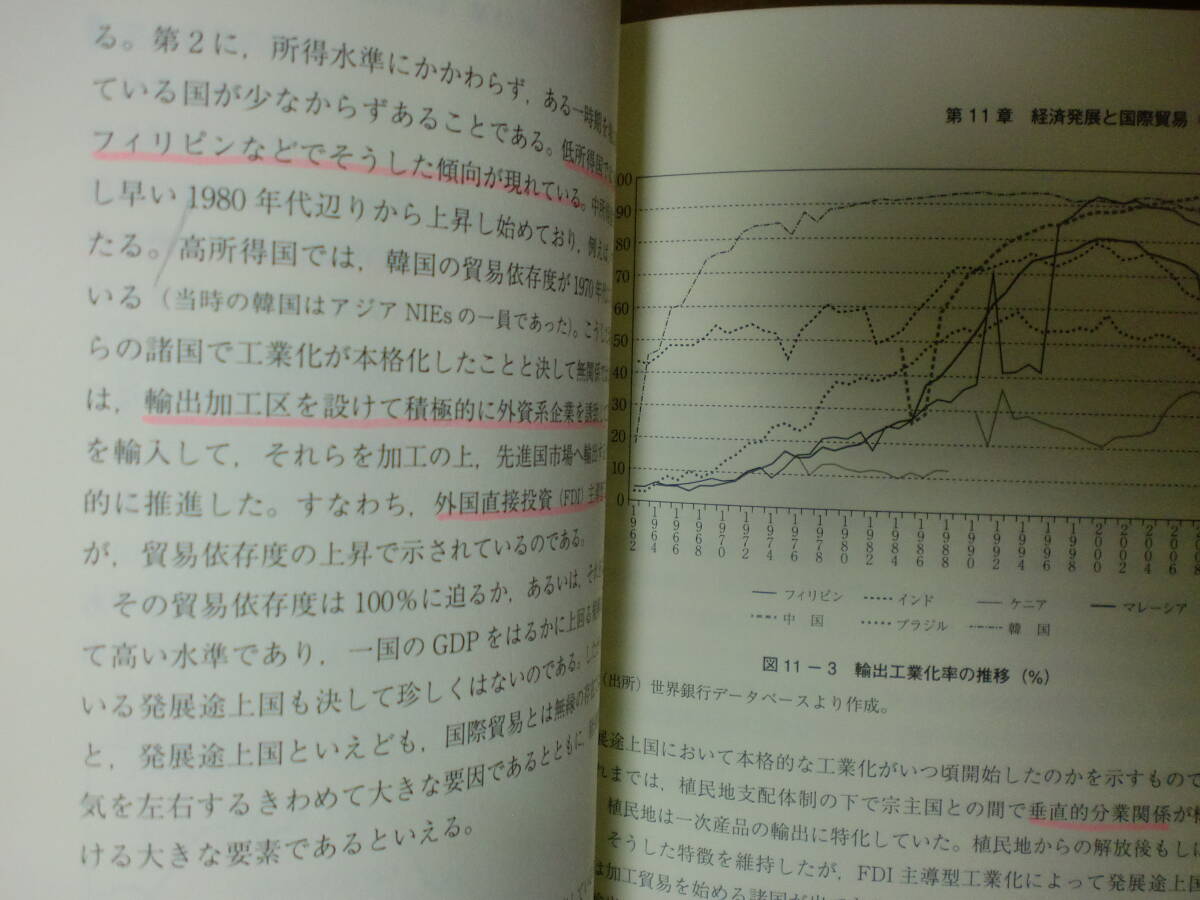 る。第2に，所得水準にかかわらず，ある一時期を
ている国が少なからずあることである。低所得国で
フィリピンなどでそうした傾向が現れている。中所得
し早い1980年代辺りから上昇し始めており，例えば
たる。高所得国では，韓国の貿易依存度が1970年代
いる（当時の韓国はアジアNIEsの一員であった）。こうし
らの諸国で工業化が本格化したことと決して無関係
は，輸出加工区を設けて積極的に外資系企業を誘
を輸入して，それらを加工の上，先進国市場へ輸出す
的に推進した。すなわち，外国直接投資（FDI）主導
が，貿易依存度の上昇で示されているのである。
その貿易依存度は100％に迫るか，あるいは，それ
て高い水準であり，一国のGDPをはるかに上回る
いる発展途上国も決して珍しくはないのである。した
と，発展途上国といえども，国際貿易とは無縁の存在
気を左右するきわめて大きな要因であるとともに，
ける大きな要素であるといえる。
第11章　経済発展と国際貿易
00
90
80
70
60
50
40
30
20
10
0
1962 1964 1966 1968 1970 1972 1974 1976 1978 1980 1982 1984 1986 1988 1990 1992 1994 1996 1998 2000 2002 2004 2006
フィリピン　インド　ケニア　マレーシア
中　国　ブラジル　韓　国
図11－3　輸出工業化率の推移（％）
（出所）世界銀行データベースより作成。
展途上国において本格的な工業化がいつ頃開始したのかを示すもので
れまでは，植民地支配体制の下で宗主国との間で垂直的分業関係が
植民地は一次産品の輸出に特化していた。植民地からの解放後もし
そうした特徴を維持したが，FDI主導型工業化によって発展途上国
は加工貿易を始める諸国が出